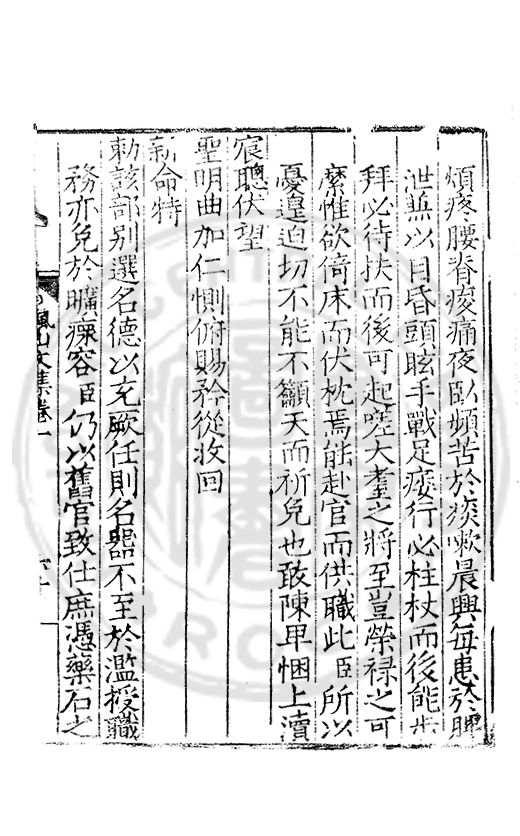 煩疼腰脊痠痛夜臥頻苦於痰嗽晨興每患於脾
泄兼以目昏頭眩手戰足痿行必柱杖而後能步
拜必待扶而後可起嗟大耋之將至豈榮祿之可
縻惟欲倚床而伏枕焉能赴官而供職此臣所以
憂遑迫切不能不籲天而祈免也敢陳卑悃上瀆
宸聰伏望
聖明曲加仁惻俯賜矜從收回
新命特
勅該部别選名德以充厥任則名器不至於濫授職
務亦免於曠瘝容臣仍以舊官致仕庶憑藥石之
楓山文集卷一